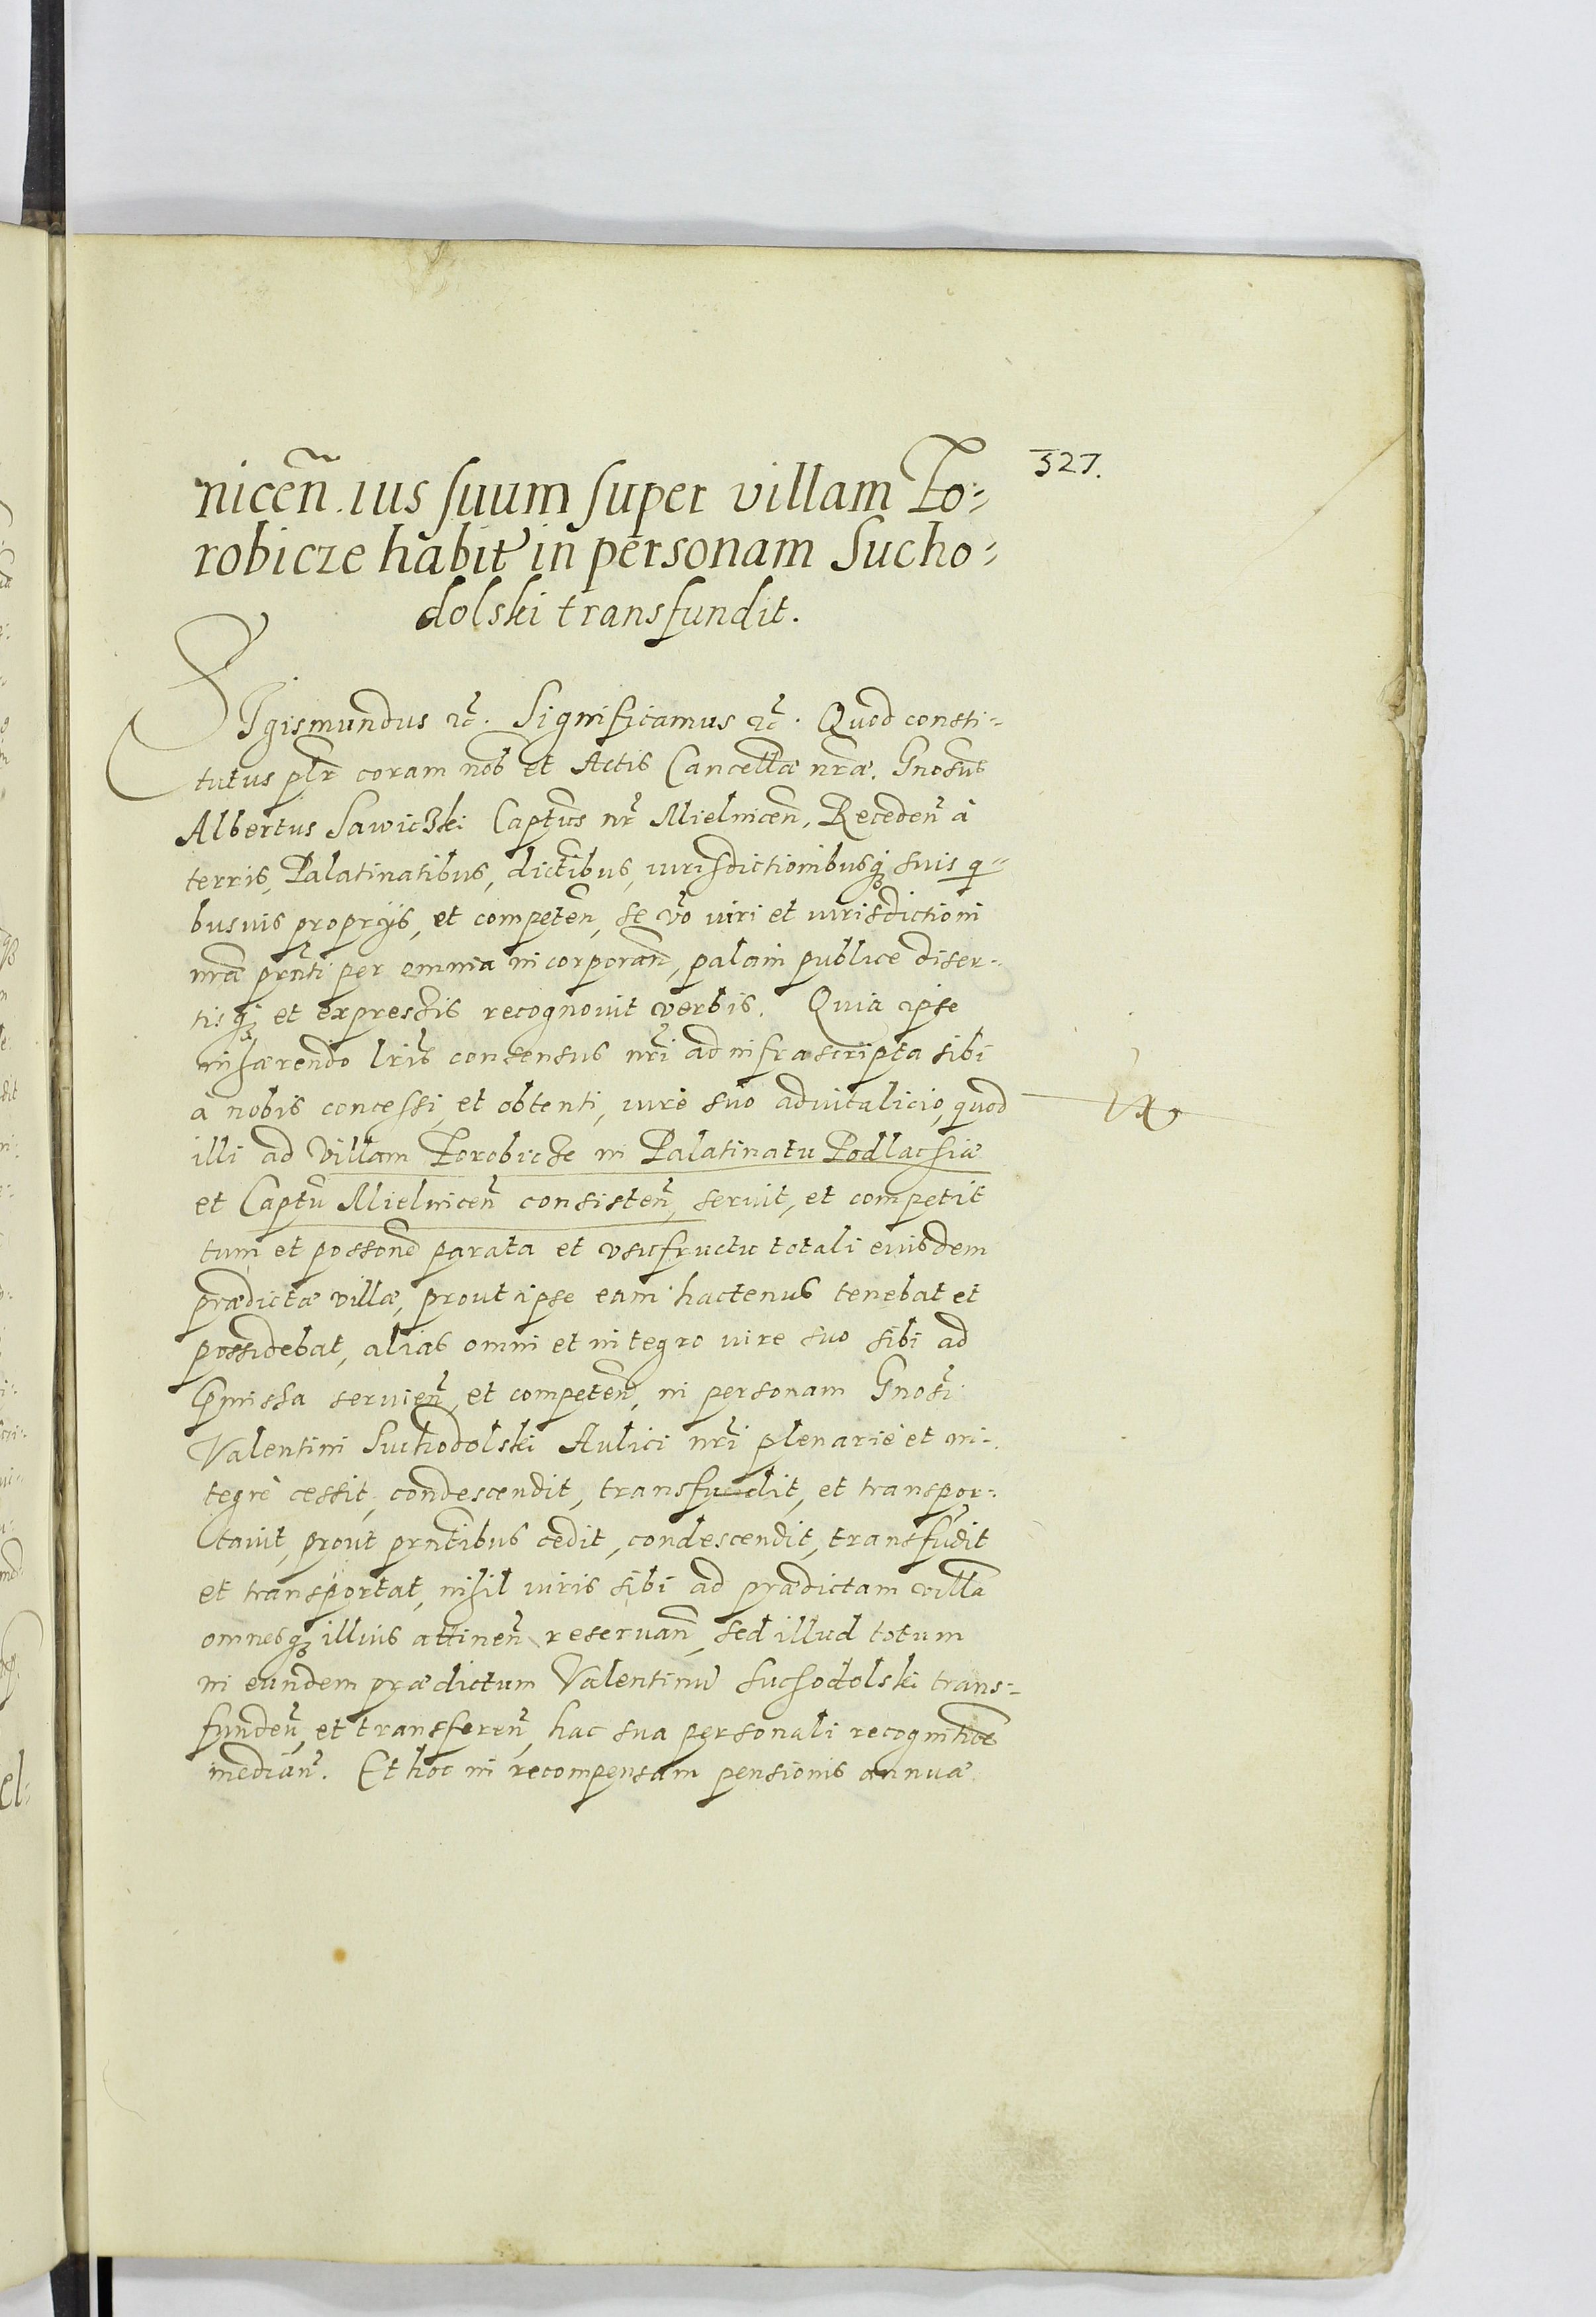 327.
niceñ. ius suum super villam To-
robicze habit in personam Sucho-
dolski transfundit.
Sigismundus etc. Significamus etc. Quod consti-
tutus plr coram nob et Actis Cancellæ nræ. Gnosus
Albertus Sawiczki Captus nr Mielnicen, Receden à
terris, Palatinatibus, dictibus, iurisdictionibusq suis q-
busuis proprijs, et competen, se vo iuri et iurisdictioni
nræ prnti per omnia incorporan, palam publice diser-
tisq et expressis recognouit verbis. Quia ipse
inhærendo lris consensus nri ad infrascripta sibi
à nobis concessi, et obtenti, iure suo aduitalicio, quod
illi ad Villam Torobicze in Palatinatu Podlachiæ
et Captu Mielnicen consisten, seruit, et competit
tum et possone parata et vsufructu totali eiusdem
prædictæ villæ, prout ipse eam hactenus tenebat et
possidebat, alias omni et integro iure suo sibi ad
præmissa seruien, et competen, in personam Gnosi
Valentini Suchodolski Aulici nri plenariè et in-
tegrè cessit, condescendit, transfudit, et transpor-
tauit, prout prntibus cedit, condescendit, transfudit
et transportat, nihil iuris sibi ad prædictam villa
omnesq illius attinen reseruan, sed illud totum
in eundem prædictum Valentinu Suchodolski trans-
funden, et transferen, hac sua personali recognitioe
median. Et hoc in recompensam pensionis annuæ